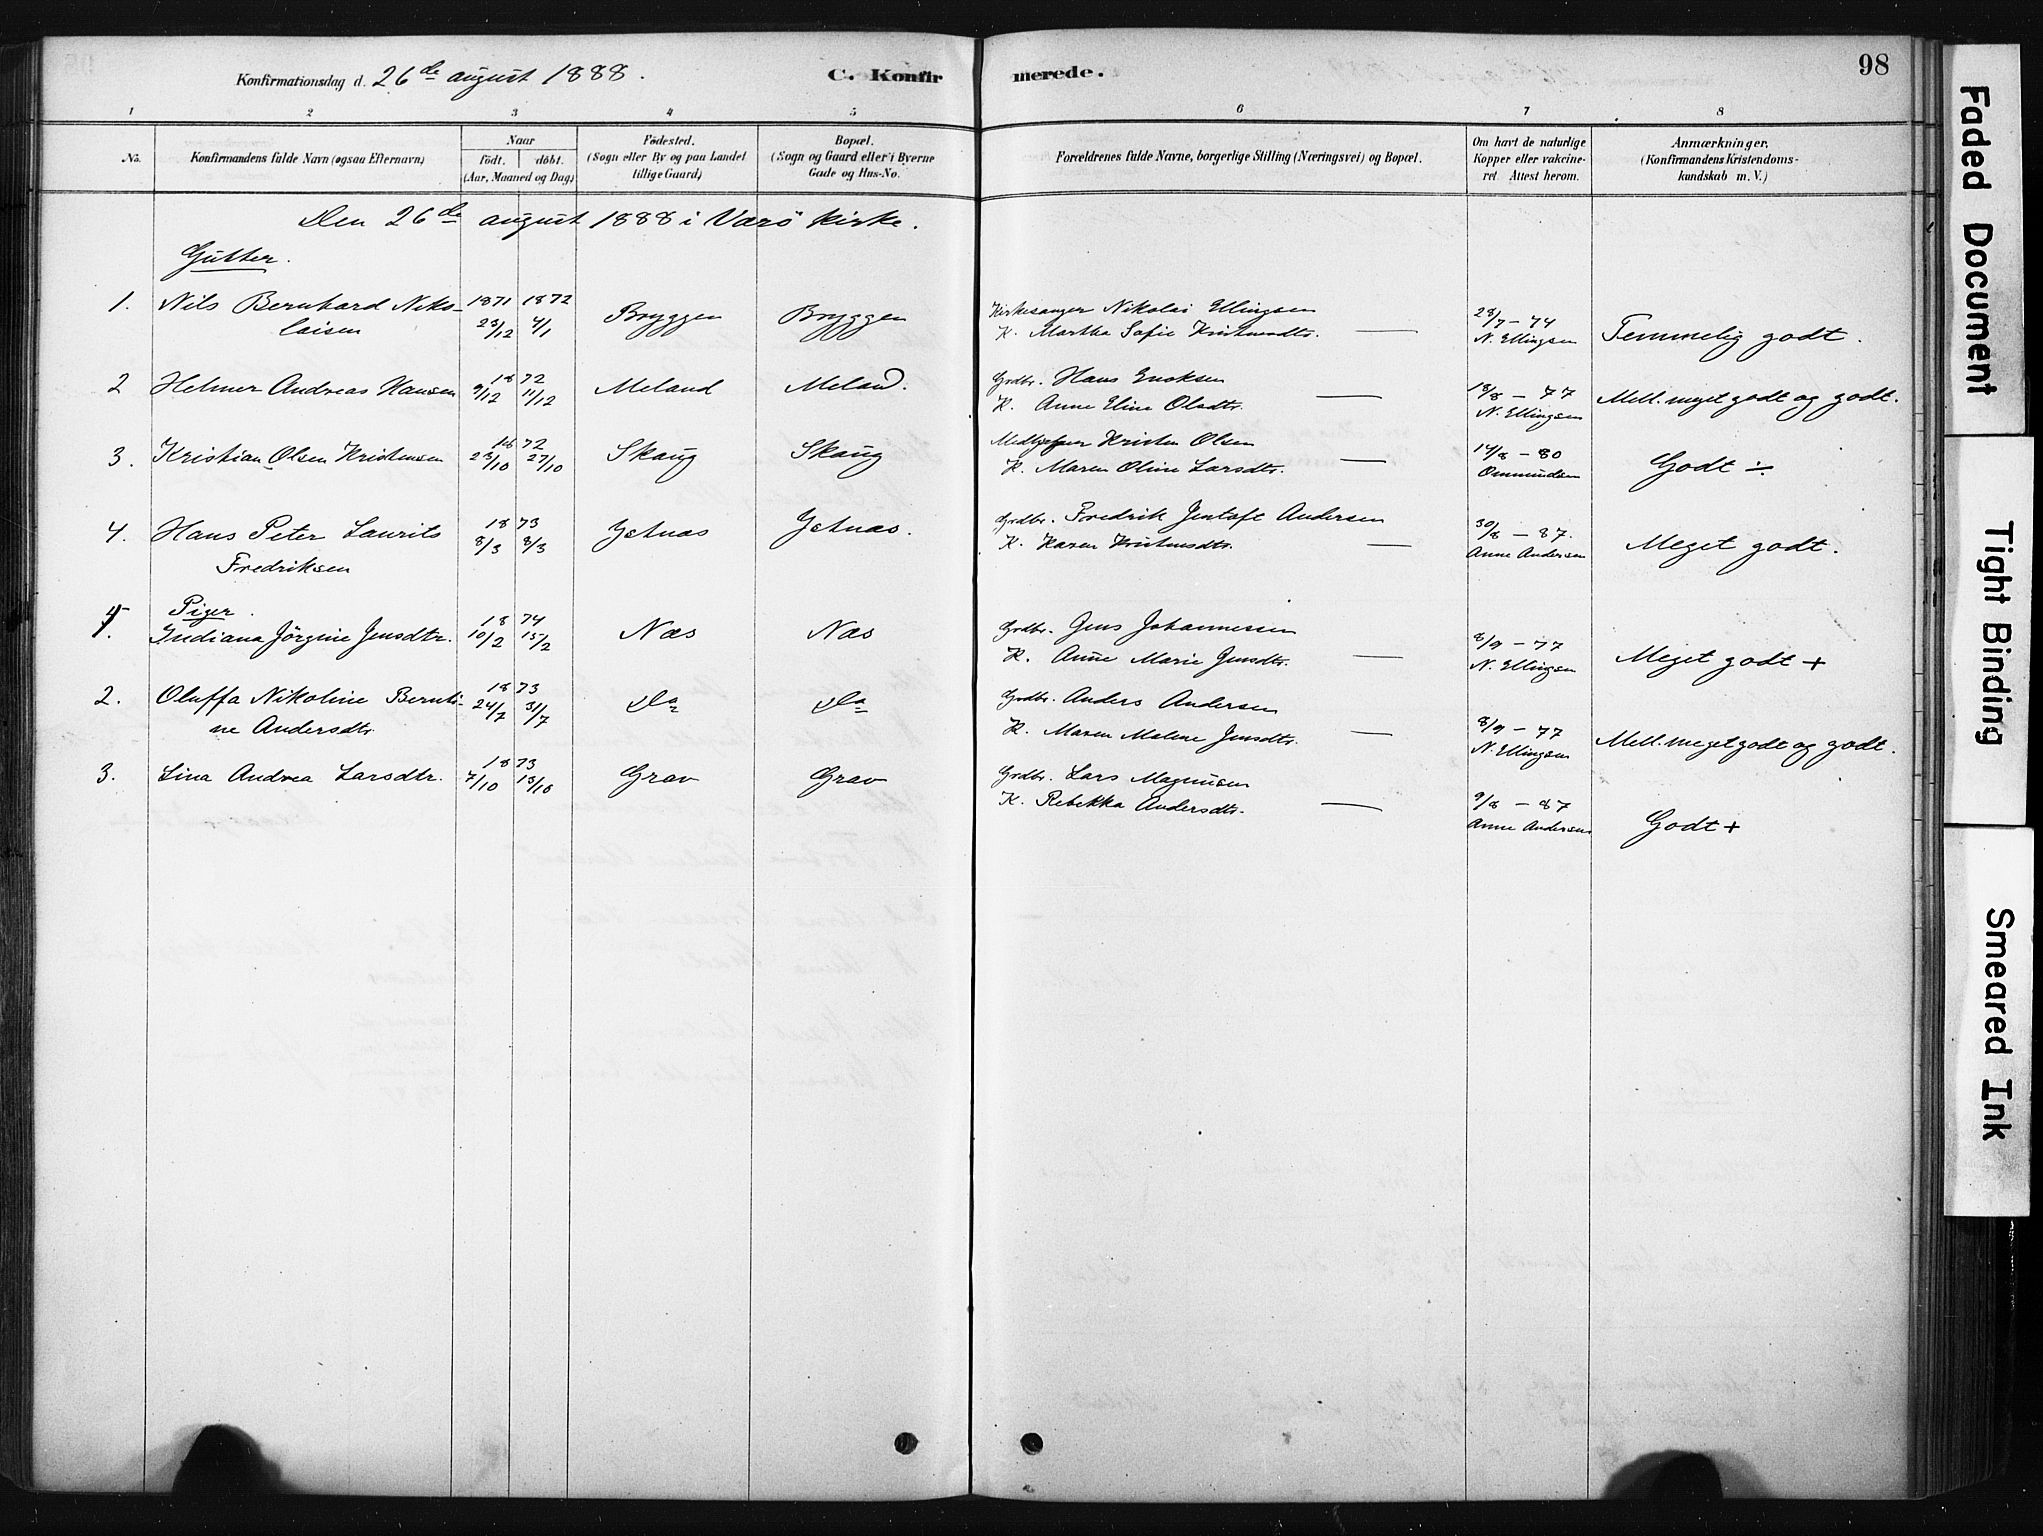 Konfirmationsdag d. 26de august 1888.
C. Konfirmerede.
98
1 2 3 4 5 6 7 8
No.
Konfirmandens fulde Navn (ogsaa Efternavn)
Naar
födt. döbt.
(Aar, Maaned og Dag)
Födested.
(Sogn eller By og paa Landet
tillige Gaard)
Bopæl.
(Sogn og Gaard eller i Byerne
Gade og Hus-No.
Forældrenes fulde Navne, borgerlige Stilling (Næringsvei) og Bopæl.
Om havt de naturlige
Kopper eller vakcine-
ret. Attest herom.
Anmærkninger,
(Konfirmandens Kristendoms-
kundskab m. V.)
Den 26de august 1888 i Værö kirke.
Gutter.
1. Nils Bernhard Niko- 1871 1872 Bryggen Bryggen Kirkesanger Nikolai Ellingsen 28/7 - 74
laisen 23/12 4/1 K. Martha Sofie — N. Ellingsen Temmelig godt.
2 Helmer Andreas Hansen 1872 9/12 11/12 Meland Meland. Grdbr. Hans Enoksen 18/8 - 77 Mell. meget godt og godt.
K. Anne Eline Olsdtr. — N. Ellingsen
3. Kristian Olsen Kristensen 1872 23/10 27/10 Skaug Skaug Kristen Olsen 14/8 - 80
K. Maren Oline Larsdtr. — Ommundsen Godt ÷
4. Hans Peter Laurits 1873 8/3 8/3 Grdbr. Fredrik Jentoft Andersen 30/8 - 87.
Fredriksen K. Karen — Anne Andersen Meget godt.
Piger.
1. Indiana Jörgine Jensdtr. 1874 10/2 15/2 Næs Næs Grdbr. Jens Johannessen 8/9 - 77
K. Anne Marie Jensdtr. — N. Ellingsen Meget godt +
2. Oluffa Nikoline Bernti- 1873 24/7 31/7 Do Do Grdbr. Anders Andersen 8/9 - 77
ne Andersdtr. K. Maren Malene Jensdtr. — N. Ellingsen Mell. meget godt og godt.
3. Lina Andrea Larsdtr. 1873 7/10 13/10 Grav Grav Grdbr. Lars Magnusen 9/8 - 87
K. Rebekka Andersdtr. — Anne Andersen Godt +
Faded Document
Tight Binding
Smeared Ink